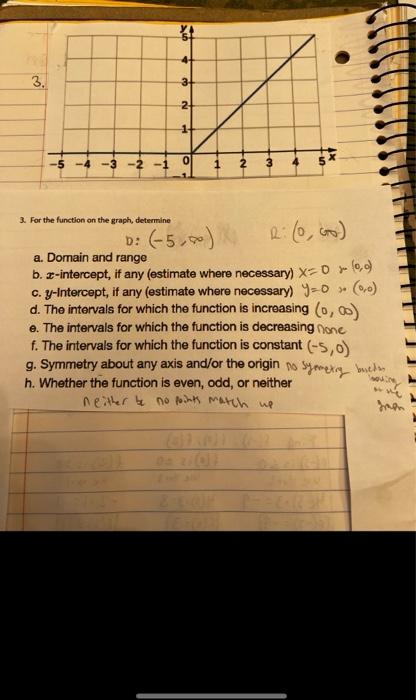 3.
y
5
4
3
2
1
-5 -4 -3 -2 -1 0 1 2 3 4 5 x
-1
3. For the function on the graph, determine
D: (-5, ∞) R: (0, ∞)
a. Domain and range
b. x-intercept, if any (estimate where necessary) x=0 (0,0)
c. y-Intercept, if any (estimate where necessary) y=0 (0,0)
d. The intervals for which the function is increasing (0, ∞)
e. The intervals for which the function is decreasing none
f. The intervals for which the function is constant (-5,0)
g. Symmetry about any axis and/or the origin no symetry
h. Whether the function is even, odd, or neither
graph
neither no points match up